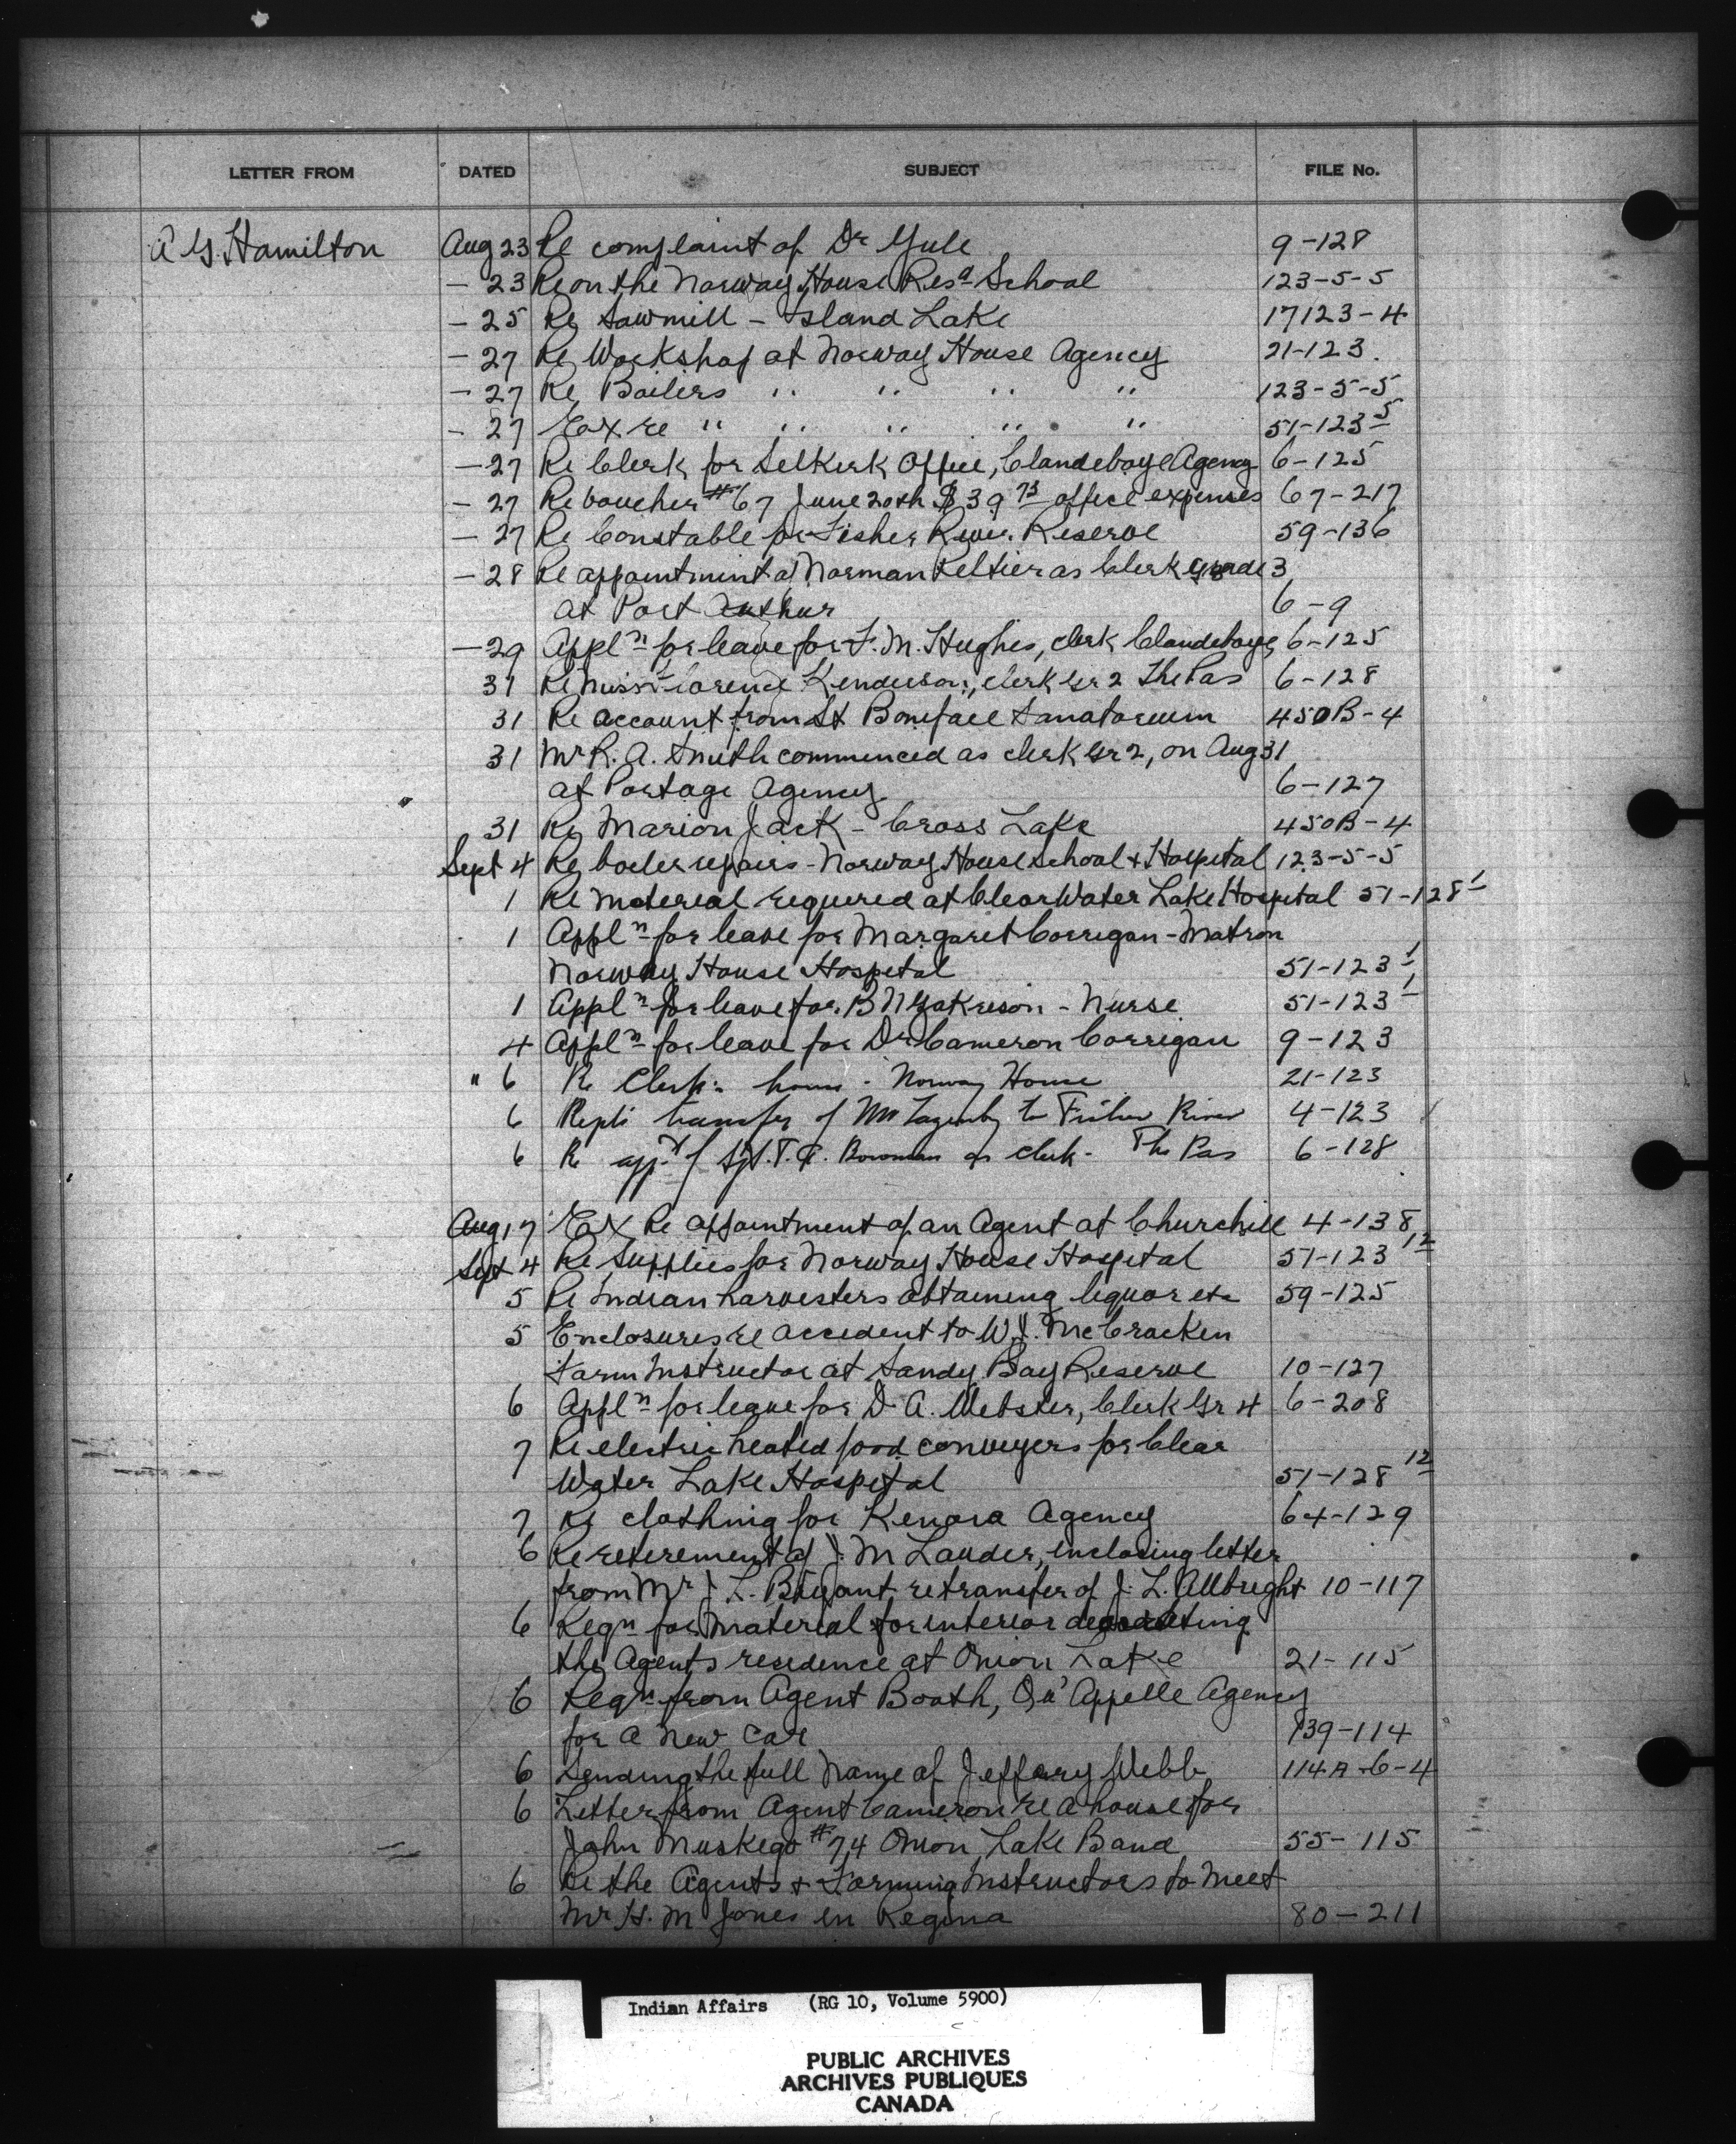 LETTER FROM DATED SUBJECT FILE No.
A G. Hamilton Aug 23 Re complaint of Dr Yule 9-128
- 23 Re on the Norway House Resd School 123-5-5
- 25 Re Sawmill - Island Lake 17123-4
- 27 Re Workshop at Norway House Agency 21-123.
- 27 Re Boilers " " " " 123-5-5
- 27 Ex re " " " " " 51-123-5
- 27 Re Clerk for Selkirk Office, Clandeboye Agency 6-125
- 27 Re voucher #67 June 20th $39 73 office expenses 67-217
- 27 Re Constable for Fisher River Reserve 59-136
- 28 Re appointment of Norman Keltier as Clerk grade 3
at Port Arthur 6-9
- 29 Appln for leave for F. M. Hughes, clerk Clandeboye 6-125
31 Re Miss Florence Kenderson, clerk Gr 2 The Pas 6-128
31 Re account from St Boniface Sanatorium 450B-4
31 Mr R. A. Smith commenced as clerk Gr 2, on Aug 31
at Portage Agency 6-127
31 Re Marion Jack - Cross Lake 450B-4
Sept 4 Re boiler repairs - Norway House School & Hospital 123-5-5
1 Re material required at Clear Water Lake Hospital 51-128 1
1 Appln for leave for Margaret Corrigan - Matron
Norway House Hospital 51-123 1
1 Appln for leave for B N - Nurse 51-123 1
4 Appln for leave for Dr Cameron Corrigan 9-123
" 6 Re Clerk's house - Norway House 21-123
6 transfer of Mr Lazenby to Fisher River 4-123
6 Re appt of Sgt. T. Bowman as clerk - The Pas 6-128
Aug 17 Ex Re appointment of an Agent at Churchill 4-138
Sept 4 Re Supplies for Norway House Hospital 51-123 12
5 Re Indian harvesters obtaining liquor etc 59-125
5 Enclosures re accident to W. J. McCracken
Farm Instructor at Sandy Bay Reserve 10-127
6 Appln for leave for D. A. Webster, Clerk Gr 4 6-208
7 Re electric heated food conveyers for Clear
Water Lake Hospital 51-128 12
7 Re clothing for Kenora Agency 64-129
6 Re retirement of J. M Lauder, inclosing letter
from Mr J. L. Bryant re transfer of J. L. Allbright 10-117
6 Reqn for material for interior decorating
the Agents residence at Onion Lake 21-115
6 Reqn from Agent Booth, Qu'Appelle Agency
for a new car 139-114
6 Sending the full name of Jeffery Webb 114A-6-4
6 Letter from Agent Cameron re a house for
John Muskego #74 Onion Lake Band 55-115
6 Re the Agents & Farming Instructors to meet
Mr H. M Jones in Regina 80-211
Indian Affairs (RG 10, Volume 5900)
PUBLIC ARCHIVES
ARCHIVES PUBLIQUES
CANADA